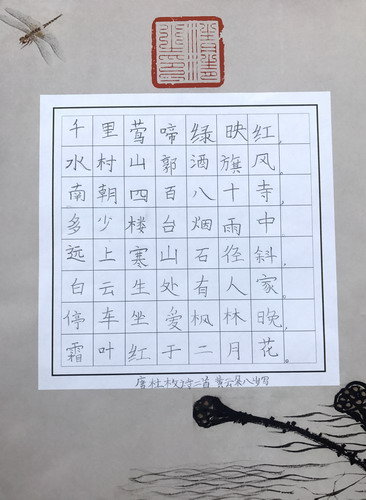 千里莺啼绿映红，
水村山郭酒旗风。
南朝四百八十寺，
多少楼台烟雨中。
远上寒山石径斜，
白云生处有人家。
停车坐爱枫林晚，
霜叶红于二月花。
唐杜牧诗二首 黄云 八岁